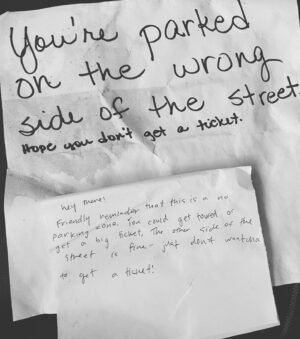 You're parked
on the wrong
side of the street
Hope you don't get a ticket.
hey there!
Friendly reminder that this is a no
parking zone. You could get towed or
get a big ticket. The other side of the
street is fine - just don't wantcha
to get a ticket!